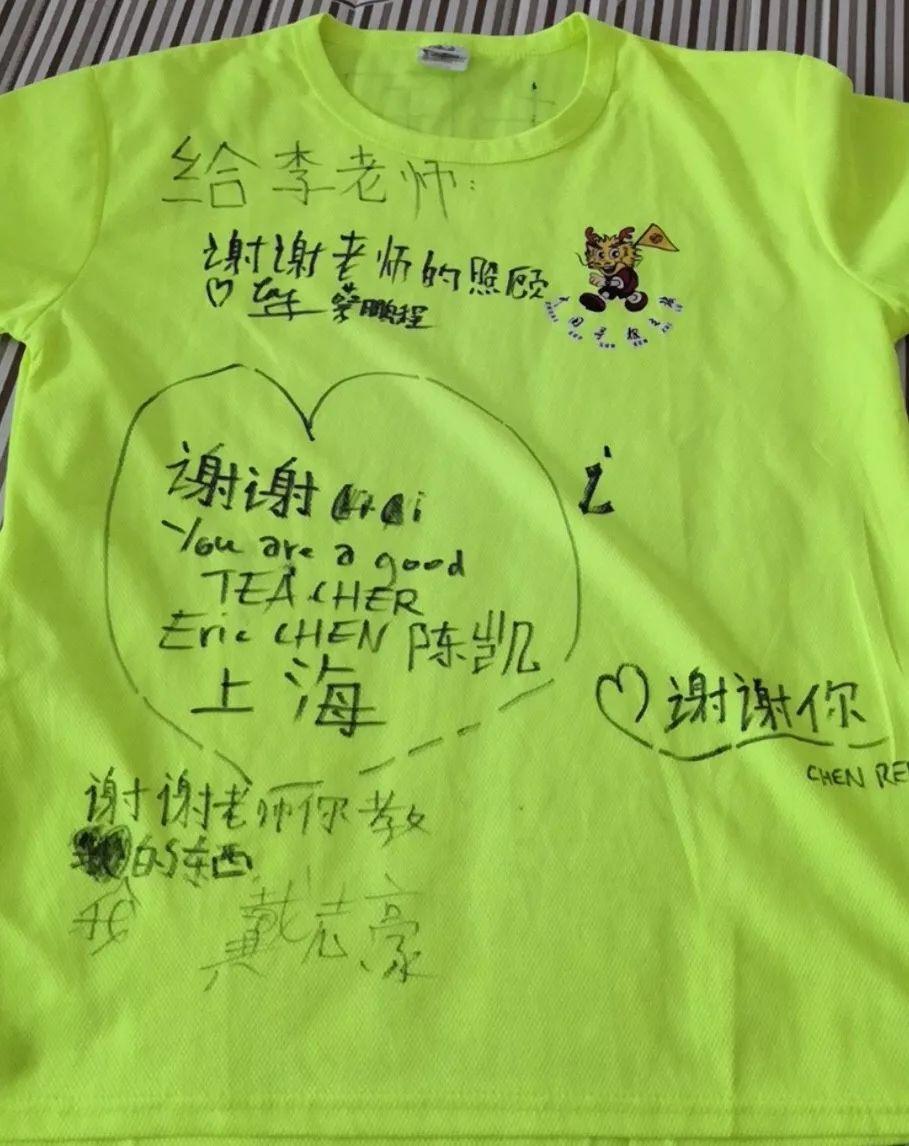 给李老师:
谢谢老师的照顾
蔡鹏程
谢谢
You are a good
TEACHER
Eric CHEN 陈凯
上海
i
谢谢你
CHEN RE
谢谢老师你教
的东西
我
戴志豪